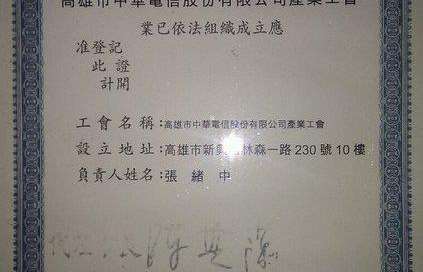 高雄市中華電信股份有限公司產業工會
業已依法組織成立應
准登記
此證
計開
工會名稱:高雄市中華電信股份有限公司產業工會
設立地址:高雄市新興區林森一路230號10樓
負責人姓名:張緒中